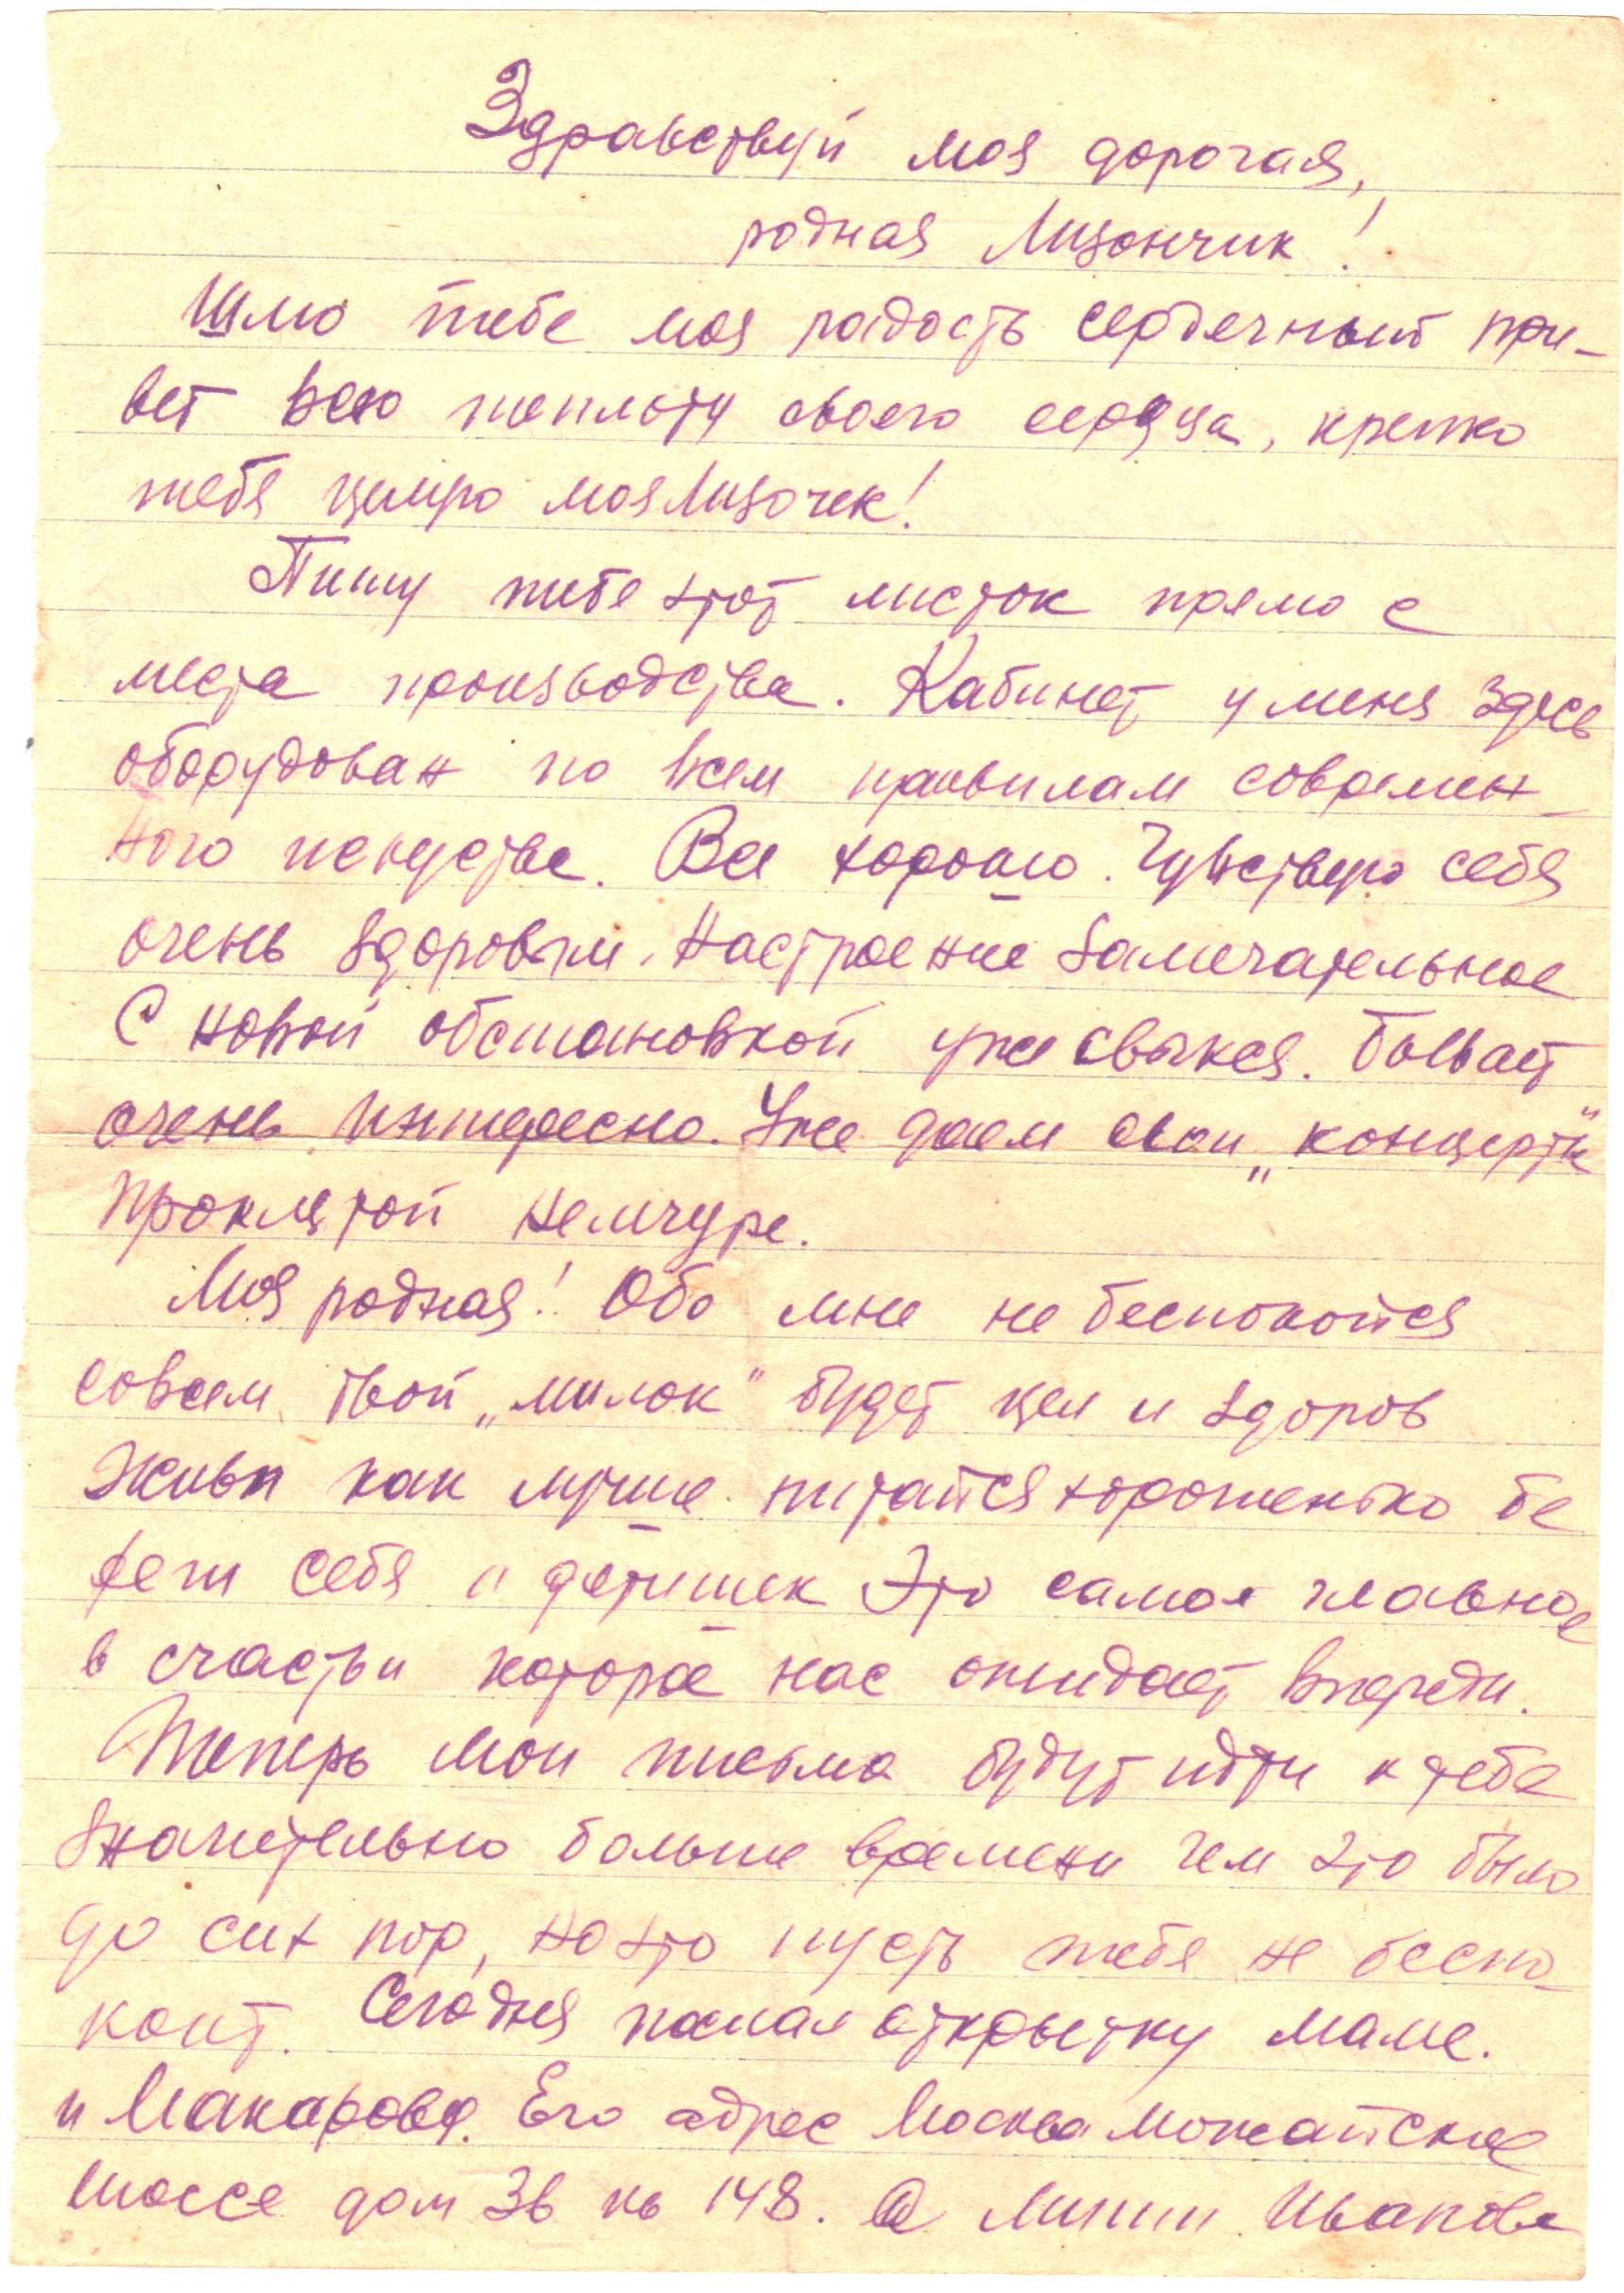 Здравствуй моя дорогая,
родная Лизончик!
Шлю тебе моя радость сердечный при-
вет всю теплоту своего сердца, крепко
тебя целую моя Лизочек!
Пишу тебе этот листок прямо с
места производства. Кабинет у меня здесь
оборудован по всем правилам современ-
ного искуства. Все хорошо. Чувствую себя
очень здоровым. Настроение замечательное
С новой обстановкой уже свыкся. Бывает
очень интересно. Уже даем свои „концерты"
проклятой немчуре.
Моя родная! Обо мне не беспокойся
совсем твой „милок" будет цел и здоров
Живи как лучше питайся хорошенько бе
реги себя и детишек Это самое главное
в счастьи которое нас ожидает впереди.
Теперь мои письма будут идти к тебе
значительно больше времени чем это было
до сих пор, но это пусть тебя не беспо-
коит. Сегодня послал открытку маме.
и Макарову. Его адрес Москва Можайское
шоссе дом 3в кв 148. А Липин Иванова